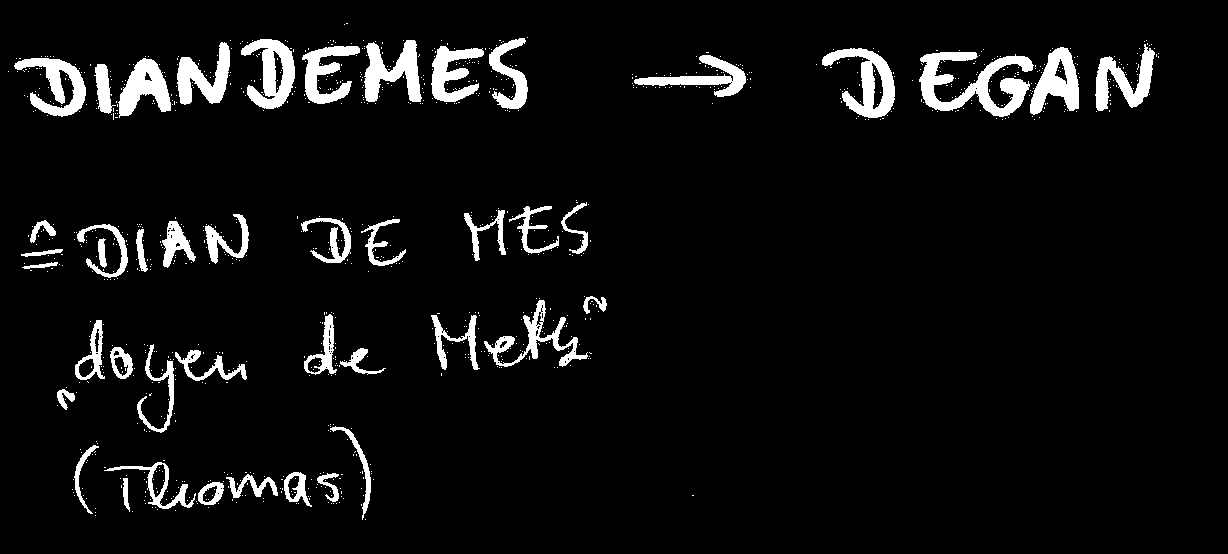 DIANDEMES → DEGAN
≙ DIAN DE MES
„doyen de Metz“
(Thomas)